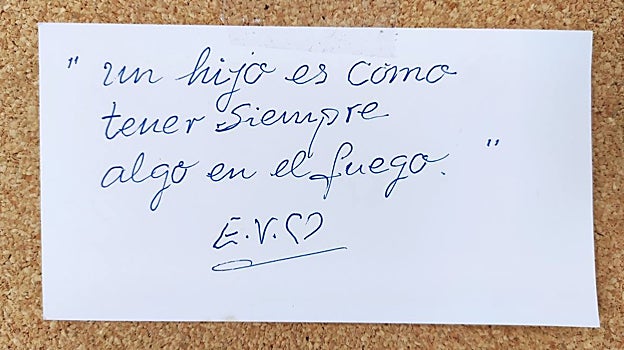 " un hijo es como
tener siempre
algo en el fuego. "
E.V.♡